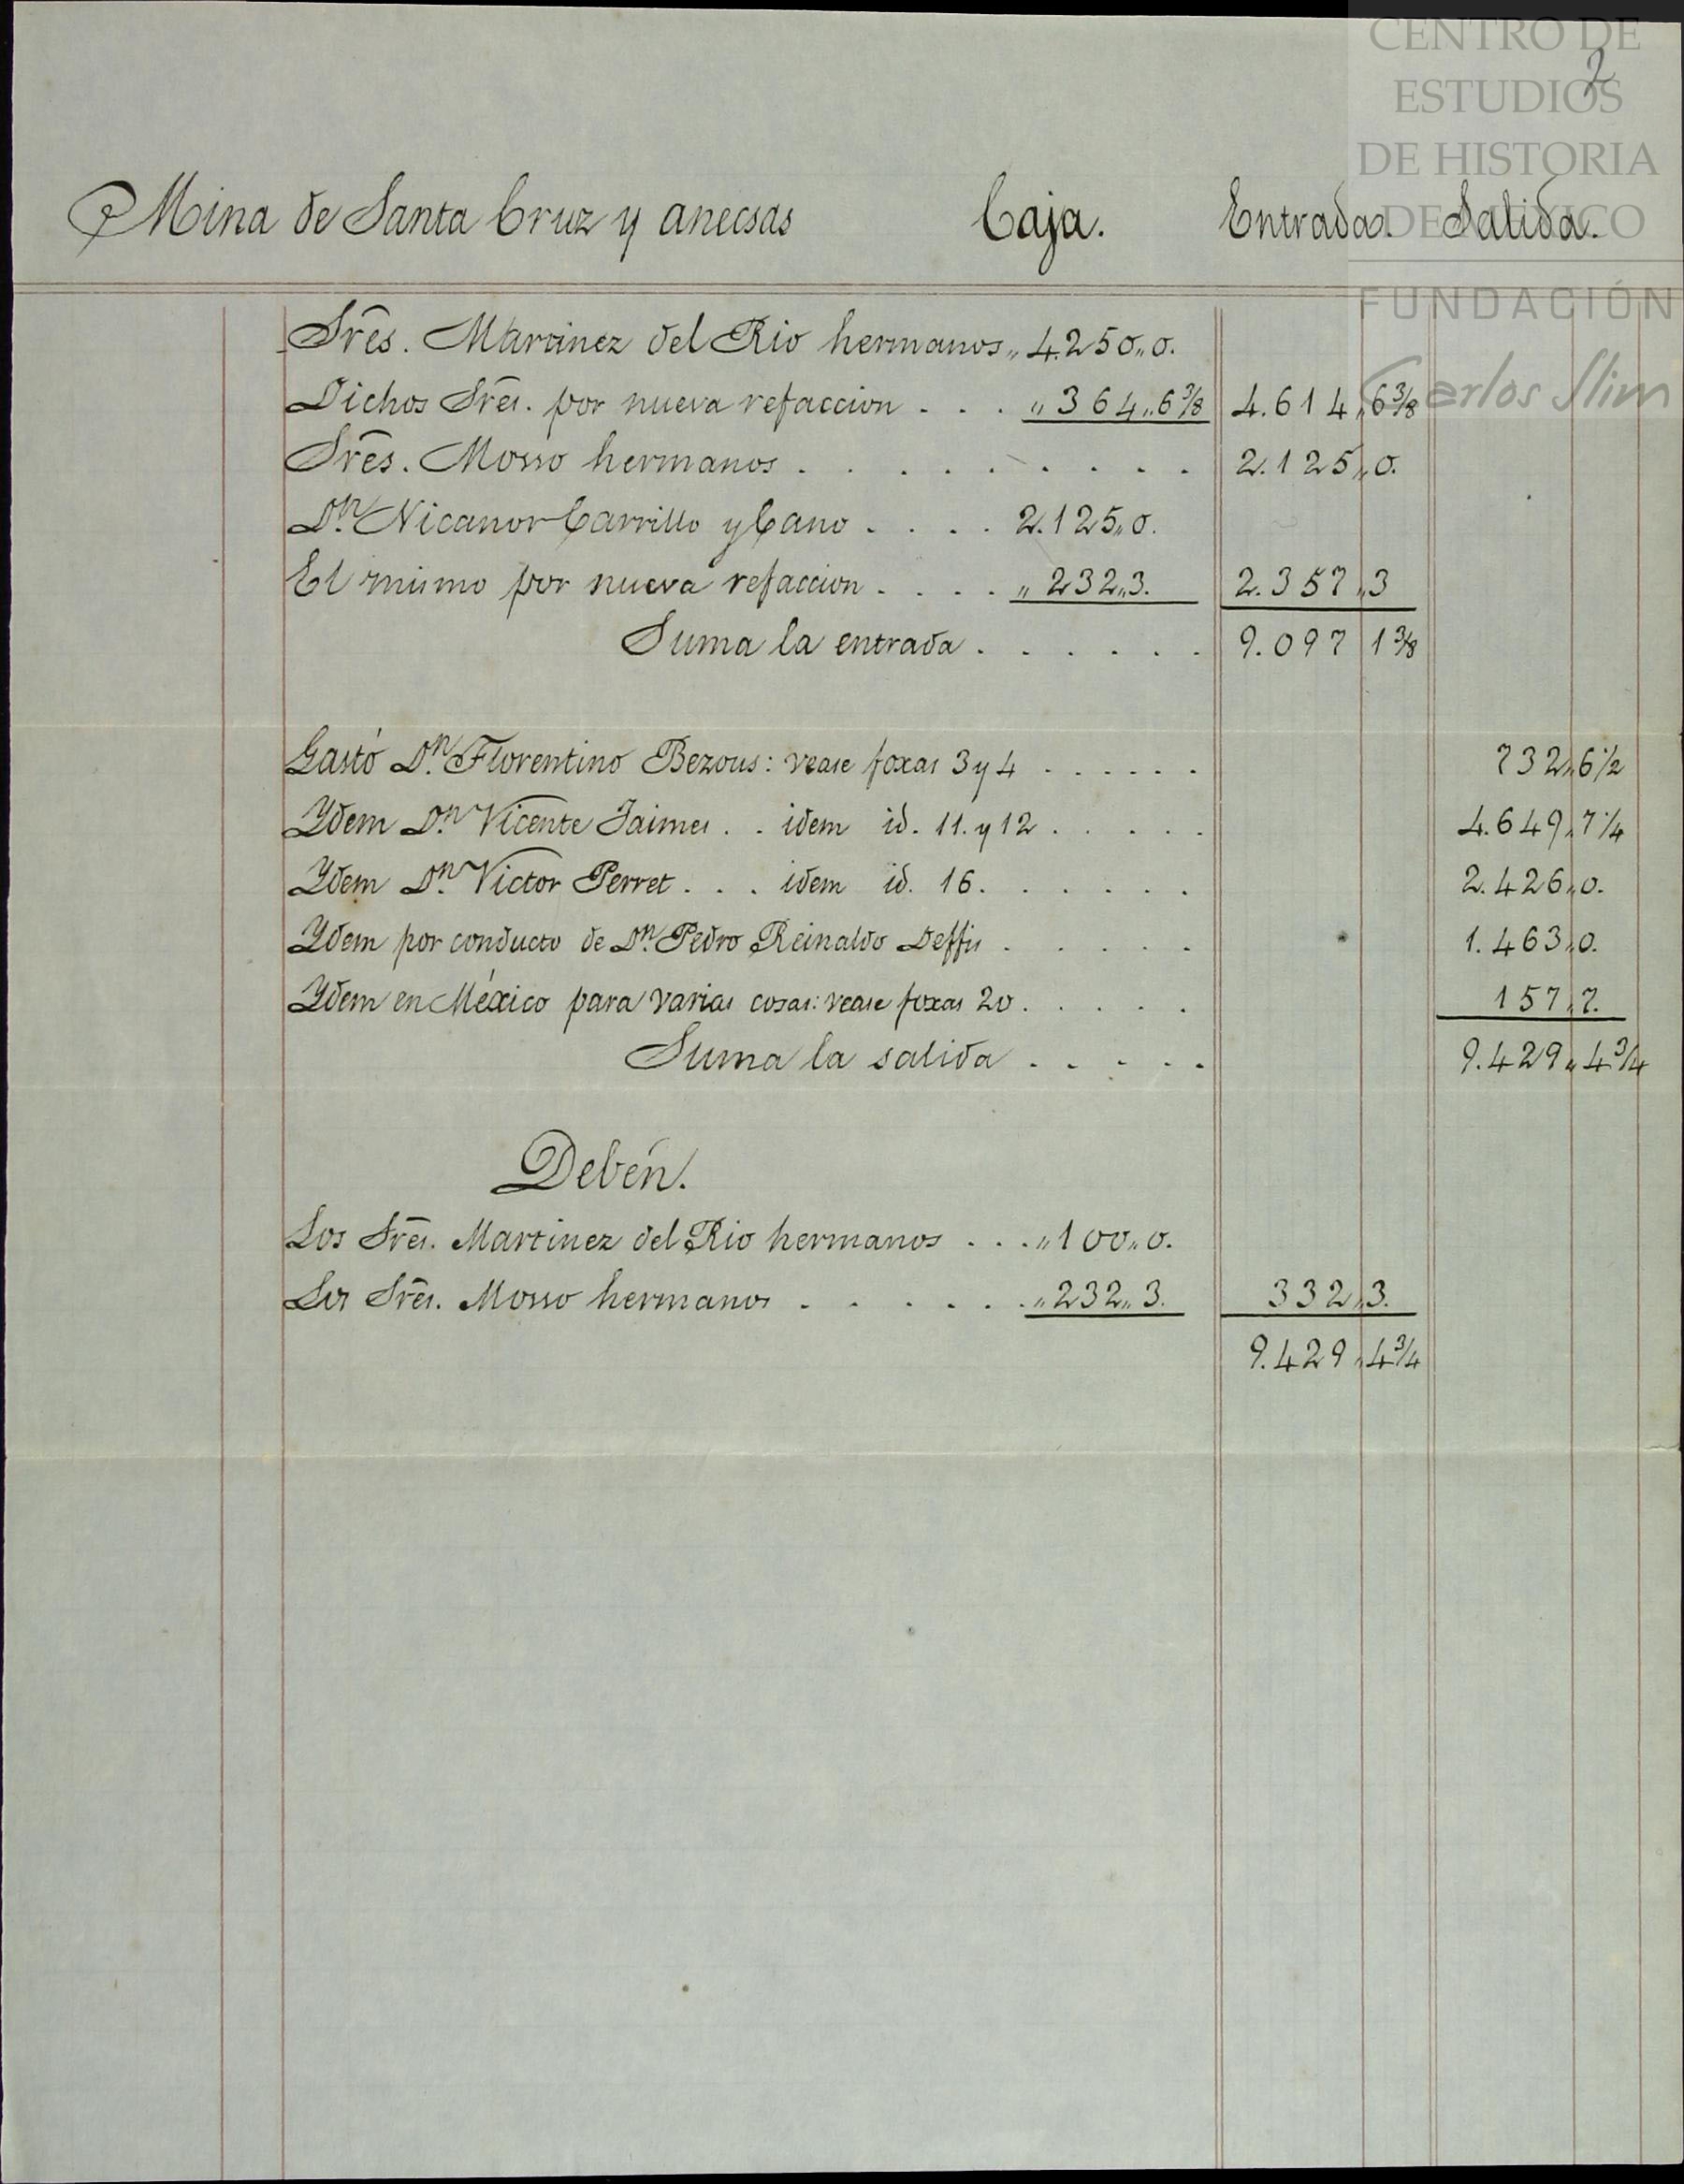 CENTRO DE
ESTUDIOS
DE HISTORIA
DE MÉXICO
FUNDACIÓN
Carlos Slim
2
Mina de Santa Cruz y anecsas Caja. Entrada. Salida.
Sres. Martinez del Rio hermanos „ 4.250„0.
Dichos Sres. por nueva refaccion . . . „ 364„6 3/8 4.614„6 3/8
Sres. Mosso hermanos . . . . . . . . . 2.125„0.
Dn. Nicanor Carrillo y Cano . . . . 2.125„0.
El mismo por nueva refaccion . . . . „ 232„3. 2.357„3
Suma la entrada . . . . . . 9.097 1 3/8
Gastó Dn. Florentino Bezous: vease foxas 3 y 4 . . . . . . 732„6 1/2
Ydem Dn. Vicente Jaimes . . idem id. 11. y 12 . . . . . 4.649„7 1/4
Ydem Dn. Victor Perret . . . idem id. 16. . . . . . 2.426„0.
Ydem por conducto de Dn. Pedro Reinaldo Deffis . . . . . 1.463„0.
Ydem en México para varias cosas: vease foxas 20 . . . . . 157„7.
Suma la salida . . . . . 9.429„4 3/4
Debén.
Los Sres. Martinez del Rio hermanos . . . „ 100„0.
Los Sres. Mosso hermanos . . . . . . „ 232„3. 332„3.
9.429„4 3/4